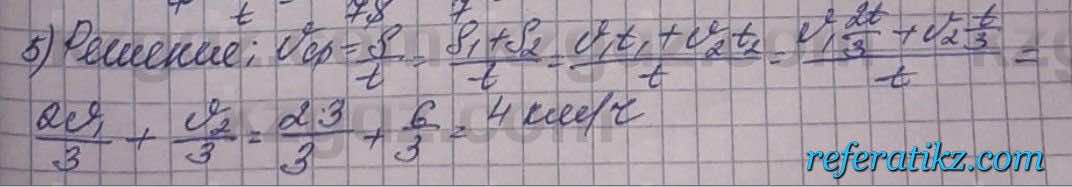 t 78 7
5) Решение; υср = S/t = (S₁+S₂)/t = (υ₁t₁+υ₂t₂)/t = (υ₁ 2t/3 + υ₂ t/3)/t =
2υ₁/3 + υ₂/3 = 2·3/3 + 6/3 = 4 км/ч
referatikz.com